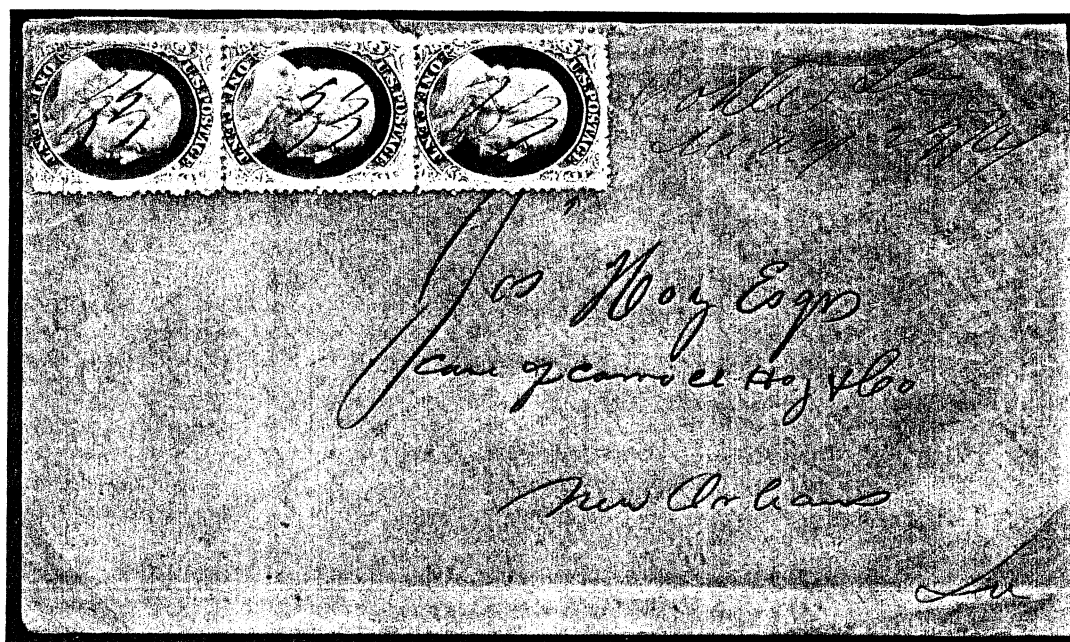 U.S. POSTAGE
ONE CENT
U.S. POSTAGE
ONE CENT
U.S. POSTAGE
ONE CENT
Jos Hoy Esqr
Care of Carroll Hoy & Co
New Orleans
La